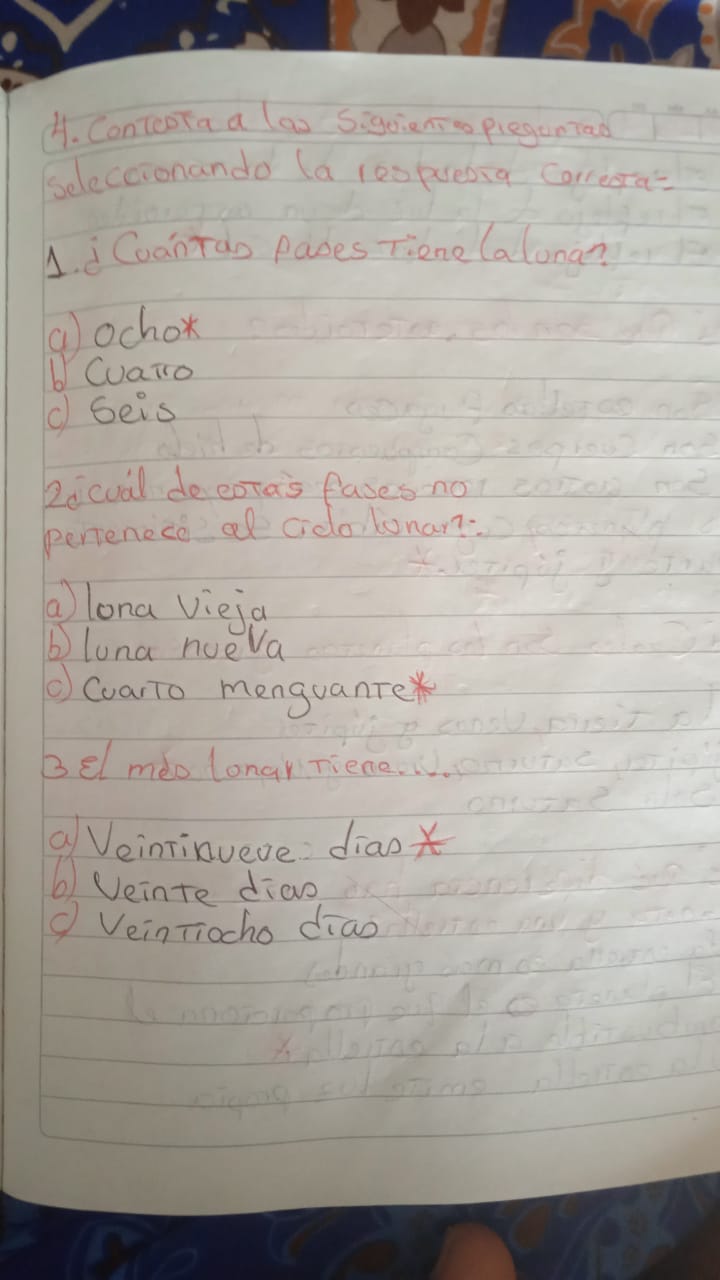 4. Contesta a las Siguientes preguntas
seleccionando la respuesta correcta=
1. ¿Cuántas fases Tiene la luna?
a) Ocho*
b) Cuatro
c) Seis
2¿cuál de estas fases no
pertenece al ciclo lunar?:
a) luna Vieja
b) luna nueva
c) Cuarto menguante*
3 El mes lunar Tiene.....
a) Veintinueve días *
b) Veinte días
c) Veintiocho días